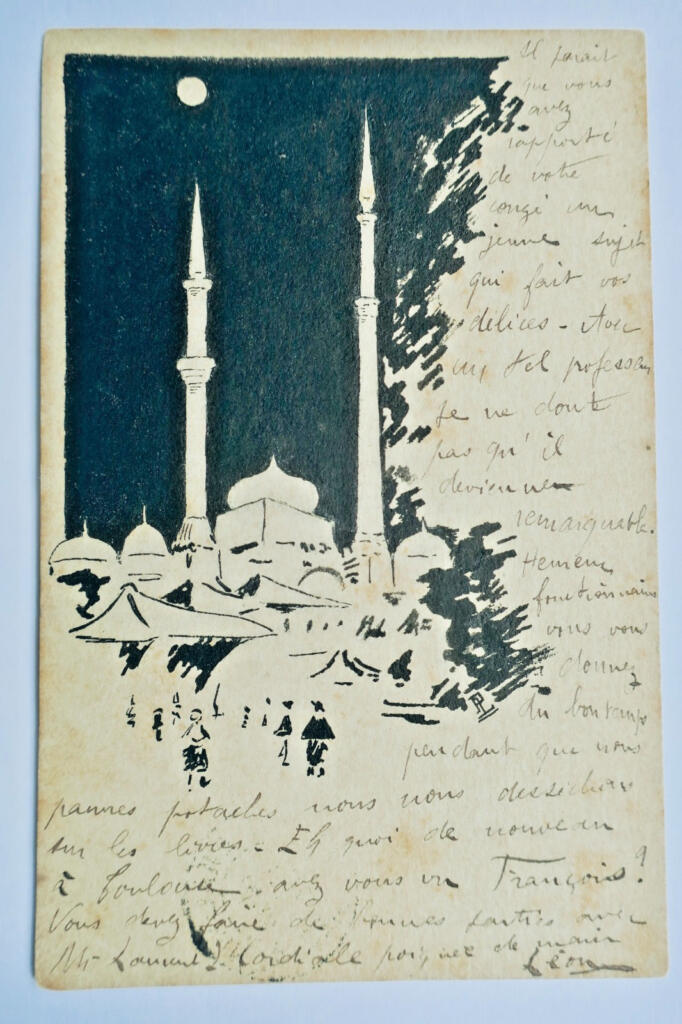 Il parait
que vous
avez
rapporté
de votre
congé un
jeune sujet
qui fait vos
délices - Avec
un tel professeur
je ne doute
pas qu'il
devienne
remarquable.
fonctionnaire
vous vous
donnez
du bon temps
pendant que nous
pauvres potaches nous nous dessechons
sur les livres - Eh quoi de nouveau
à Toulouse avez vous vu François?
Vous devez faire de bonnes parties avec
Mr Laurent. Cordiale poignée de main
Léon